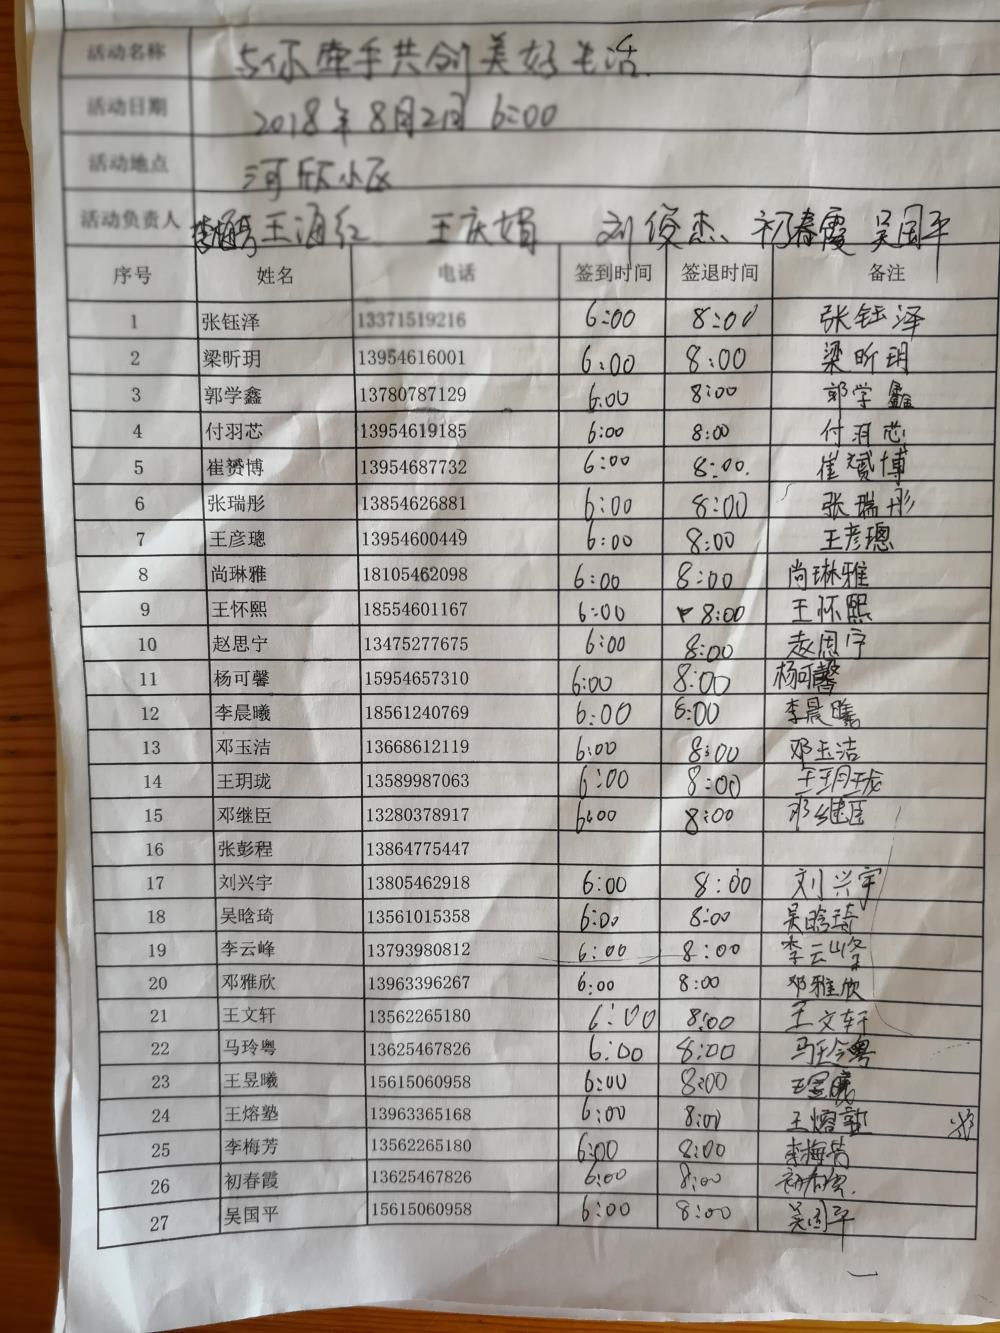 活动名称 与你牵手共创美好生活.
活动日期 2018年8月2日 6:00
活动地点 河欣小区
活动负责人 李梅芳 王海红 王庆娟 刘俊杰 初春霞 吴国平
序号 姓名 电话 签到时间 签退时间 备注
1 张钰泽 13371519216 6:00 8:00 张钰泽
2 梁昕玥 13954616001 6:00 8:00 梁昕玥
3 郭学鑫 13780787129 6:00 8:00 郭学鑫
4 付羽芯 13954619185 6:00 8:00 付羽芯
5 崔赟博 13954687732 6:00 8:00. 崔赟博
6 张瑞彤 13854626881 6:00 8:00 张瑞彤
7 王彦璁 13954600449 6:00 8:00 王彦璁
8 尚琳雅 18105462098 6:00 8:00 尚琳雅
9 王怀熙 18554601167 6:00 8:00 王怀熙
10 赵思宁 13475277675 6:00 8:00 赵思宁
11 杨可馨 15954657310 6:00 8:00 杨可馨
12 李晨曦 18561240769 6:00 8:00 李晨曦
13 邓玉洁 13668612119 6:00 8:00 邓玉洁
14 王玥珑 13589987063 6:00 8:00 王玥珑
15 邓继臣 13280378917 6:00 8:00 邓继臣
16 张彭程 13864775447
17 刘兴宇 13805462918 6:00 8:00 刘兴宇
18 吴晗琦 13561015358 6:00 8:00 吴晗琦
19 李云峰 13793980812 6:00 8:00 李云峰
20 邓雅欣 13963396267 6:00 8:00 邓雅欣
21 王文轩 13562265180 6:00 8:00 王文轩
22 马玲粤 13625467826 6:00 8:00 马玲粤
23 王昱曦 15615060958 6:00 8:00 王昱曦
24 王熔塾 13963365168 6:00 8:00 王熔塾
25 李梅芳 13562265180 6:00 8:00 李梅芳
26 初春霞 13625467826 6:00 8:00 初春霞.
27 吴国平 15615060958 6:00 8:00 吴国平